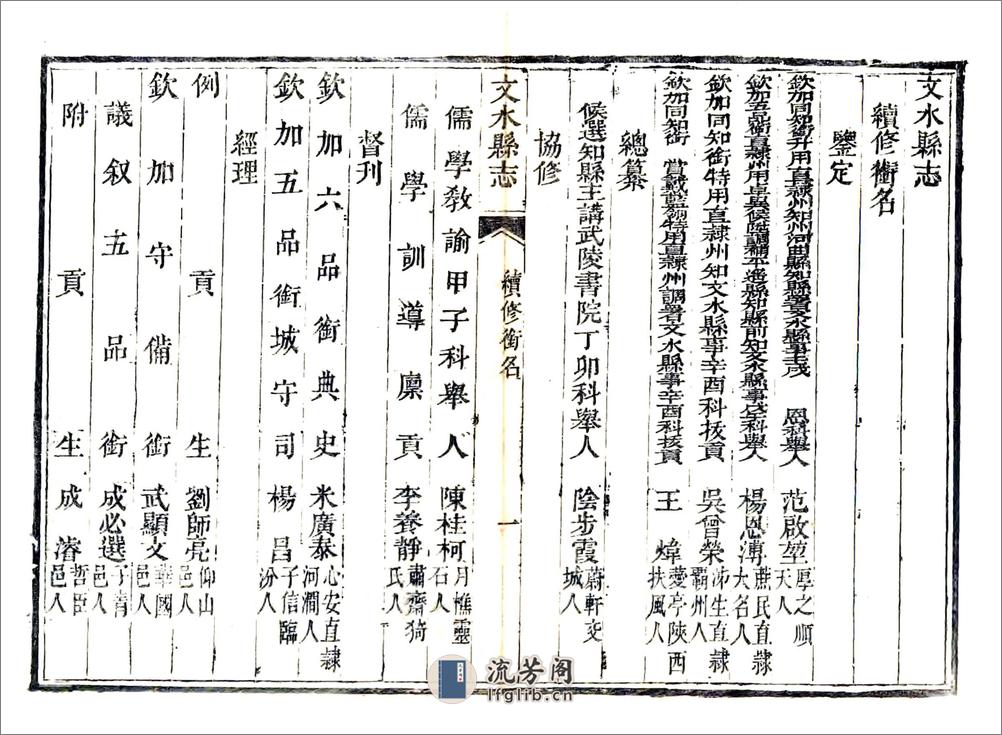 文水縣志
續修銜名
鑒定
欽加同知銜升用直隸州知州河曲縣知縣署文水縣事壬戌 恩科舉人 范啟堃厚之順天人
欽加五品銜直隸州用卓異候陞調補平遙縣知縣前知文水縣事 科舉人 楊恩溥蔗民直隸大名人
欽加同知銜特用直隸州知文水縣事辛酉科拔貢 吳曾榮沛生直隸霸州人
欽加同知銜 賞戴藍翎特用直隸州調署文水縣事辛酉科拔貢 王煒愛亭陝西扶風人
總纂
候選知縣主講武陵書院丁卯科舉人 陰步霞蔚軒交城人
協修
儒學教諭甲子科舉人 陳桂柯月樵靈石人
儒學訓導廩貢 李養靜肅齋猗氏人
督刊
欽加六品銜典史 米廣泰心安直隸河澗人
欽加五品銜城守司 楊昌子信臨汾人
經理
例貢生 劉師亮仰山邑人
欽加守備銜 武顯文華國邑人
議叙五品銜 成必選子青邑人
附貢生 成濬哲臣邑人
文水縣志
續修銜名
一
流芳阁
lfglib.cn